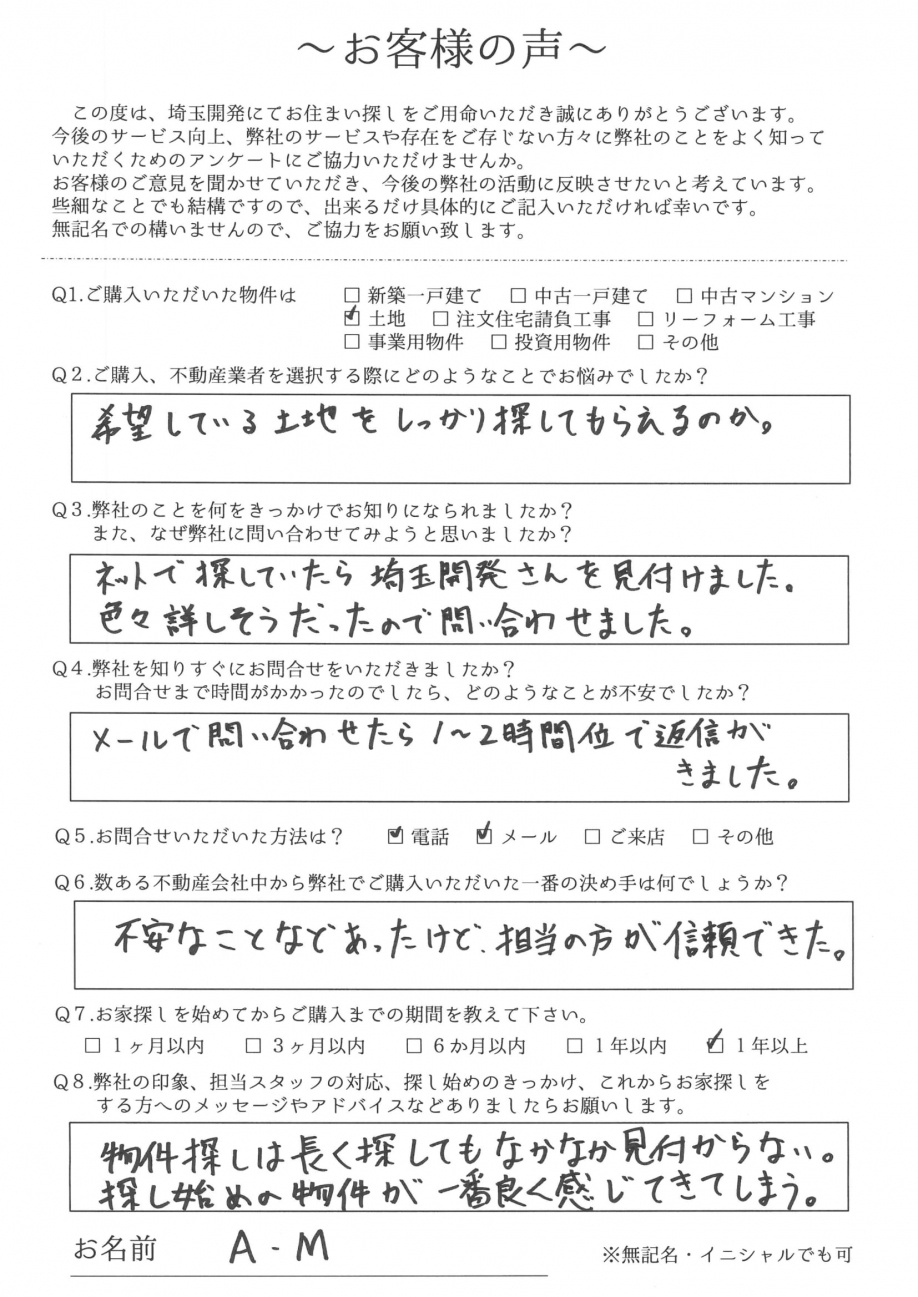 ～お客様の声～
この度は、埼玉開発にてお住まい探しをご用命いただき誠にありがとうございます。
今後のサービス向上、弊社のサービスや存在をご存じない方々に弊社のことをよく知って
いただくためのアンケートにご協力いただけませんか。
お客様のご意見を聞かせていただき、今後の弊社の活動に反映させたいと考えています。
些細なことでも結構ですので、出来るだけ具体的にご記入いただければ幸いです。
無記名での構いませんので、ご協力をお願い致します。
Q1.ご購入いただいた物件は □ 新築一戸建て □ 中古一戸建て □ 中古マンション
☑ 土地 □ 注文住宅請負工事 □ リーフォーム工事
□ 事業用物件 □ 投資用物件 □ その他
Q２.ご購入、不動産業者を選択する際にどのようなことでお悩みでしたか？
希望している土地をしっかり探してもらえるのか。
Q３.弊社のことを何をきっかけでお知りになられましたか？
また、なぜ弊社に問い合わせてみようと思いましたか？
ネットで探していたら埼玉開発さんを見付けました。
色々詳しそうだったので問い合わせました。
Q４.弊社を知りすぐにお問合せをいただきましたか？
お問合せまで時間がかかったのでしたら、どのようなことが不安でしたか？
メールで問い合わせたら1～2時間位で返信が
きました。
Q５.お問合せいただいた方法は？ ☑ 電話 ☑ メール □ ご来店 □ その他
Q６.数ある不動産会社中から弊社でご購入いただいた一番の決め手は何でしょうか？
不安なことなどあったけど、担当の方が信頼できた。
Q７.お家探しを始めてからご購入までの期間を教えて下さい。
□ １ヶ月以内 □ ３ヶ月以内 □ ６か月以内 □ １年以内 ☑ １年以上
Q８.弊社の印象、担当スタッフの対応、探し始めのきっかけ、これからお家探しを
する方へのメッセージやアドバイスなどありましたらお願いします。
物件探しは長く探してもなかなか見付からない。
探し始めの物件が一番良く感じてきてしまう。
お名前 A-M ※無記名・イニシャルでも可